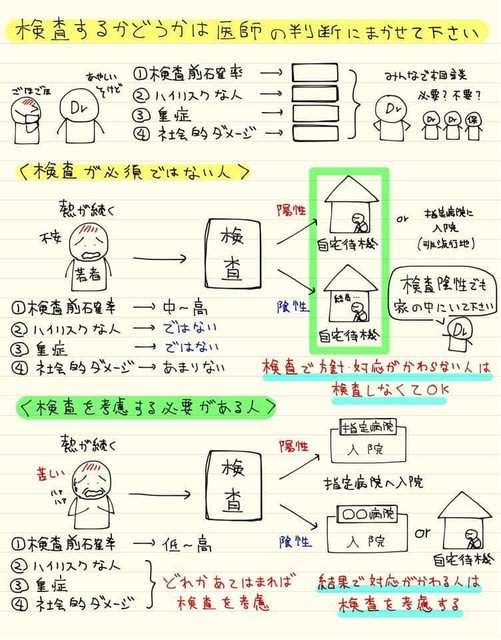 検査するかどうかは医師の判断にまかせて下さい
ごほごほ
あやしいけど
Dr
①検査前確率 →
②ハイリスクな人 →
③重症 →
④社会的ダメージ →
みんなで相談
必要？不要？
Dr
Dr Dr 保
〈検査が必須ではない人〉
熱が続く
不安
若者
検査
陽性
自宅待機
or 指定病院に
入院
(非流行地)
陰性
結局…
自宅待機
検査陰性でも
家の中にいて下さい
Dr
①検査前確率 → 中〜高
②ハイリスクな人 → ではない
③重症 → ではない
④社会的ダメージ → あまりない
検査で方針・対応がかわらない人は
検査しなくてOK
〈検査を考慮する必要がある人〉
熱が続く
苦しい
ハァ
ハァ
検査
陽性
指定病院
入院
指定病院へ入院
陰性
○○病院
入院
or
自宅待機
①検査前確率 → 低〜高
②ハイリスクな人
③重症
④社会的ダメージ
どれかあてはまれば
検査を考慮
結果で対応がかわる人は
検査を考慮する